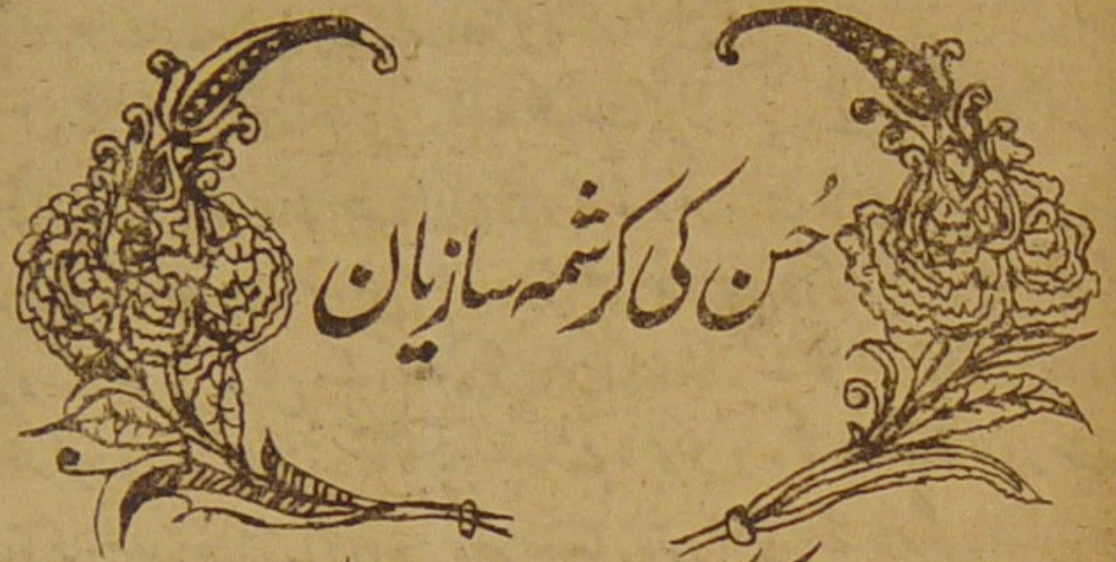 حُسن کی کرشمہ سازیان